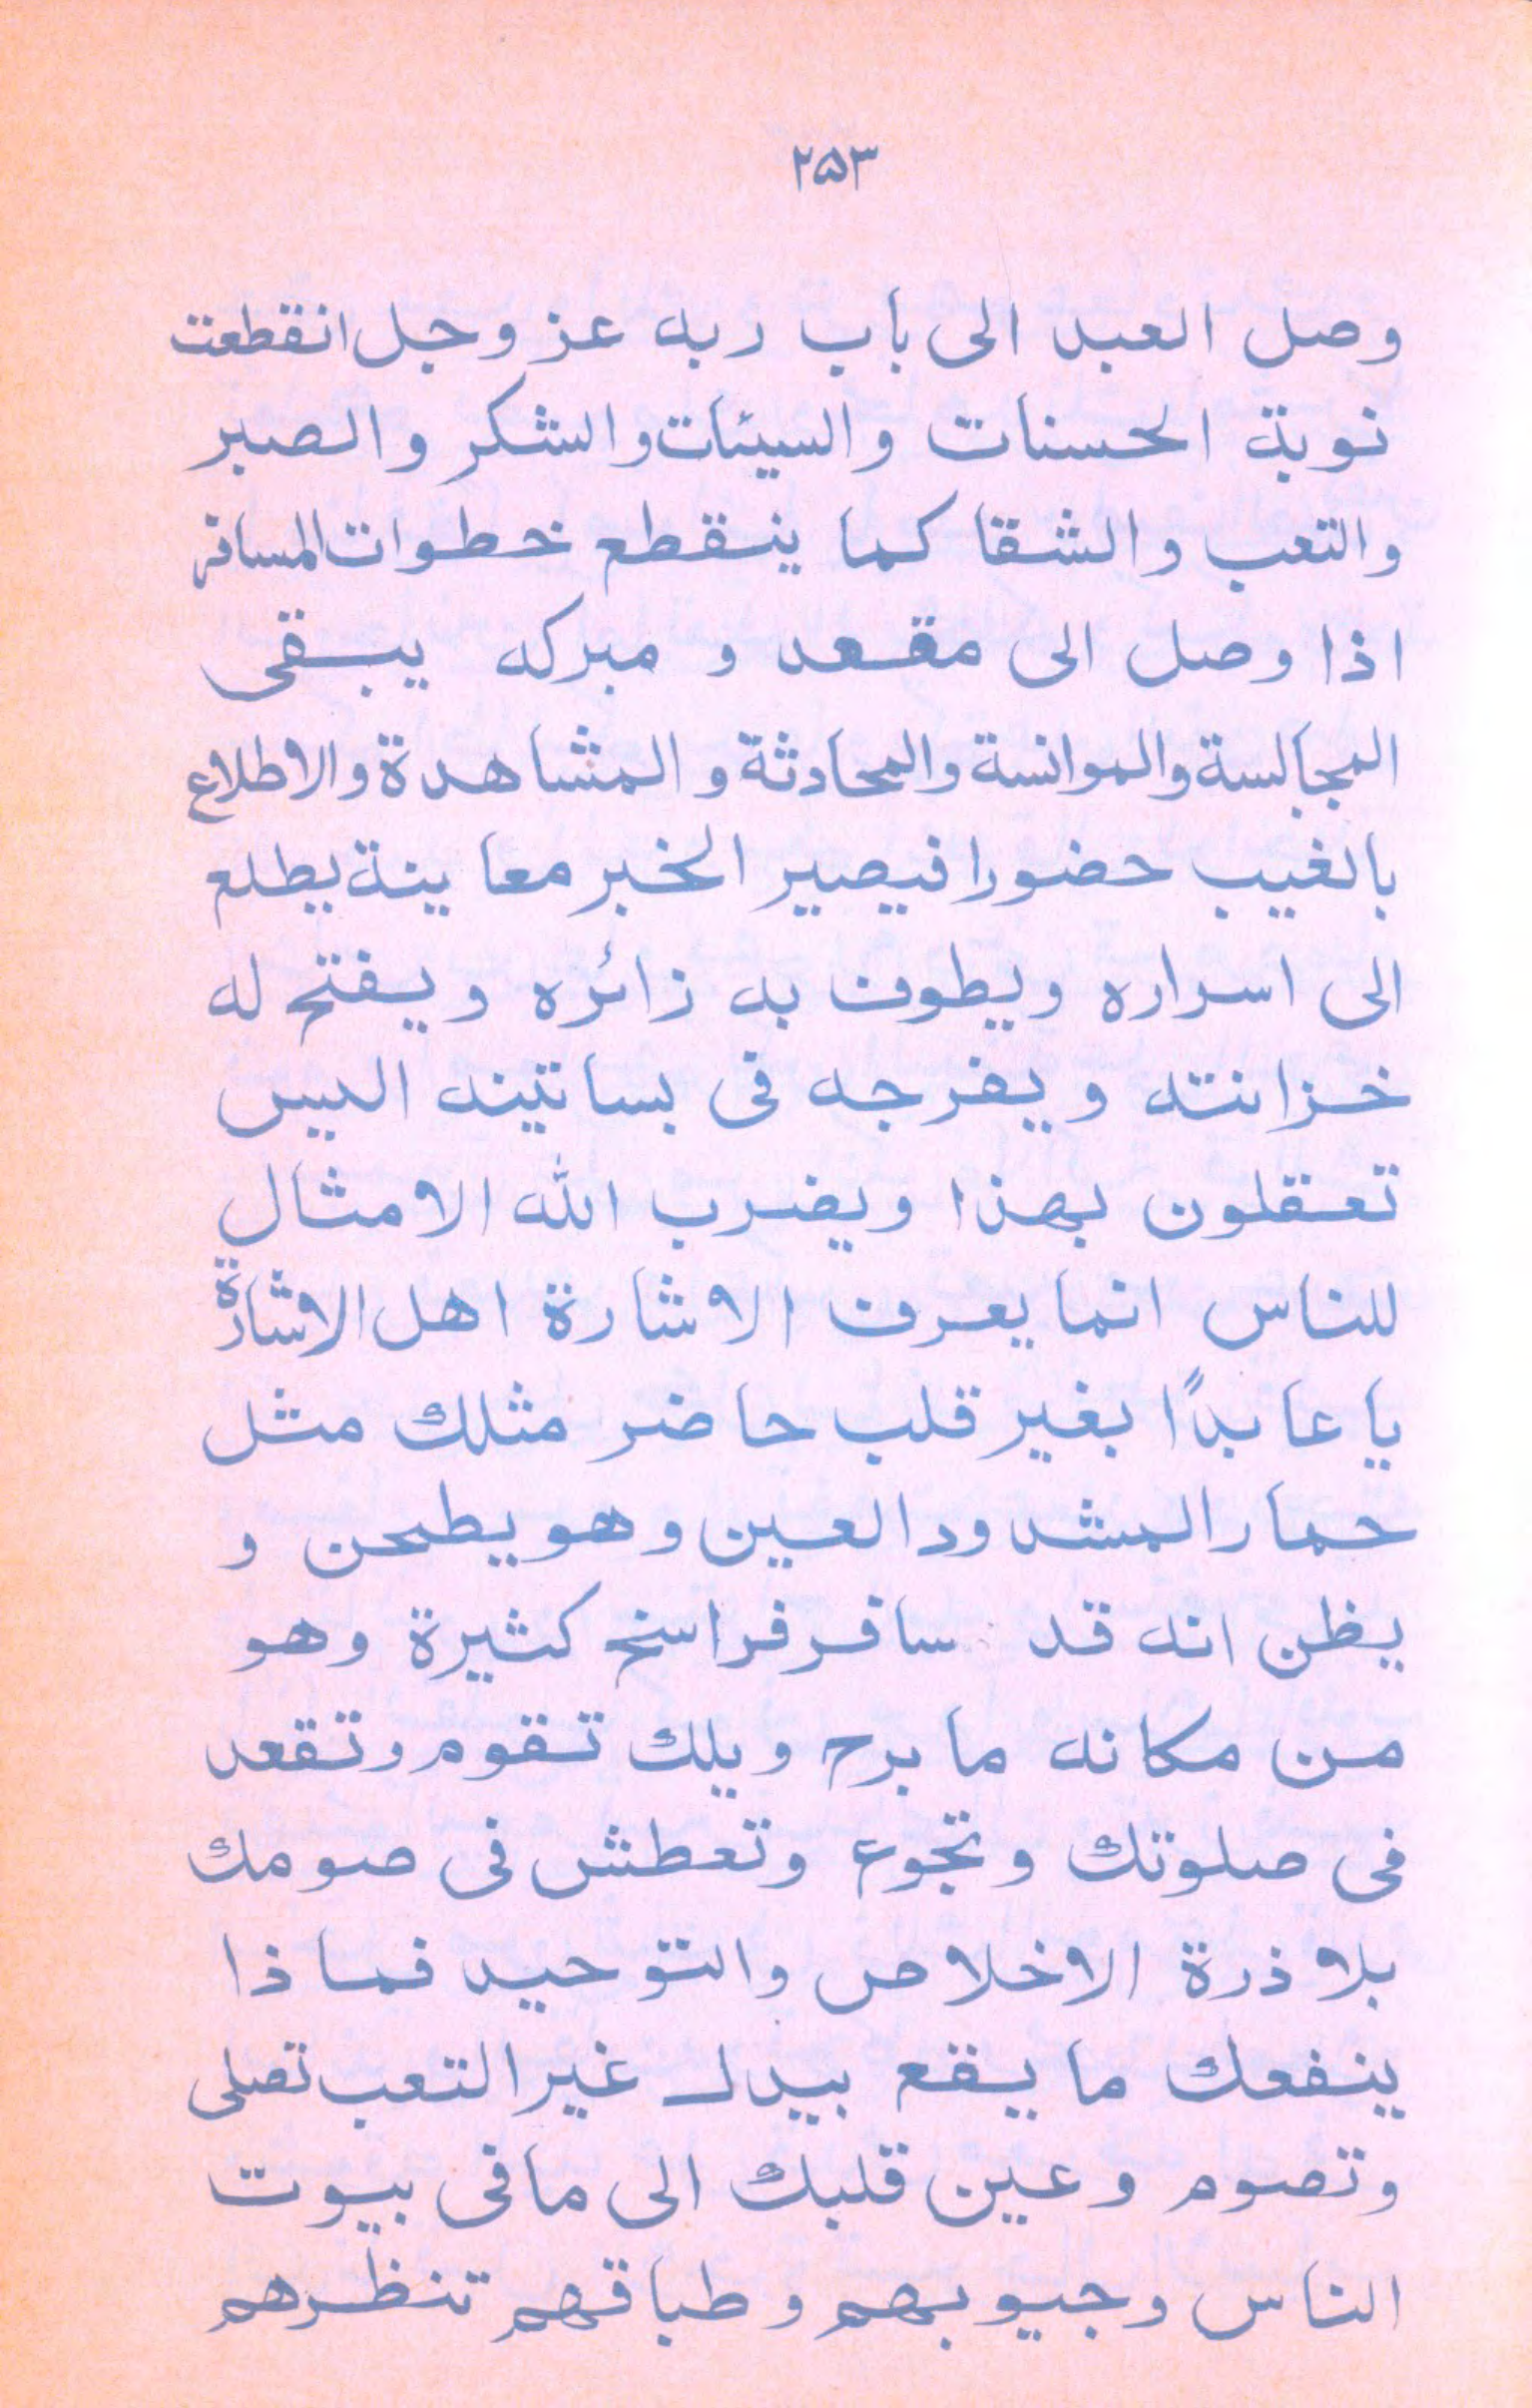 ۲۵۳
وصل العبد الى باب ربه عز وجل انقطعت
نوبة الحسنات والسيئات والشكر والصبر
والتعب والشقا كما ينقطع خطوات المسافر
اذا وصل الى مقعد و مبركه يبقى
المجالسة والموانسة والمحادثة والمشاهدة والاطلاع
بالغيب حضورا فيصير الخبر معاينة يطلع
الى اسراره ويطوف به زائره ويفتح له
خزانته ويفرجه فى بساتينه اليس
تعقلون بهذا ويضرب الله الامثال
للناس انما يعرف الاشارة اهل الاشارة
يا عابدًا بغير قلب حاضر مثلك مثل
حمار المشدود العين وهو يطحن و
يظن انه قد سافر فراسخ كثيرة وهو
من مكانه ما برح ويلك تقوم وتقعد
فى صلوتك وتجوع وتعطش فى صومك
بلا ذرة الاخلاص والتوحيد فما ذا
ينفعك ما يقع بيدك غير التعب تصلى
وتصوم وعين قلبك الى ما فى بيوت
الناس وجيوبهم وطباقهم تنظرهم